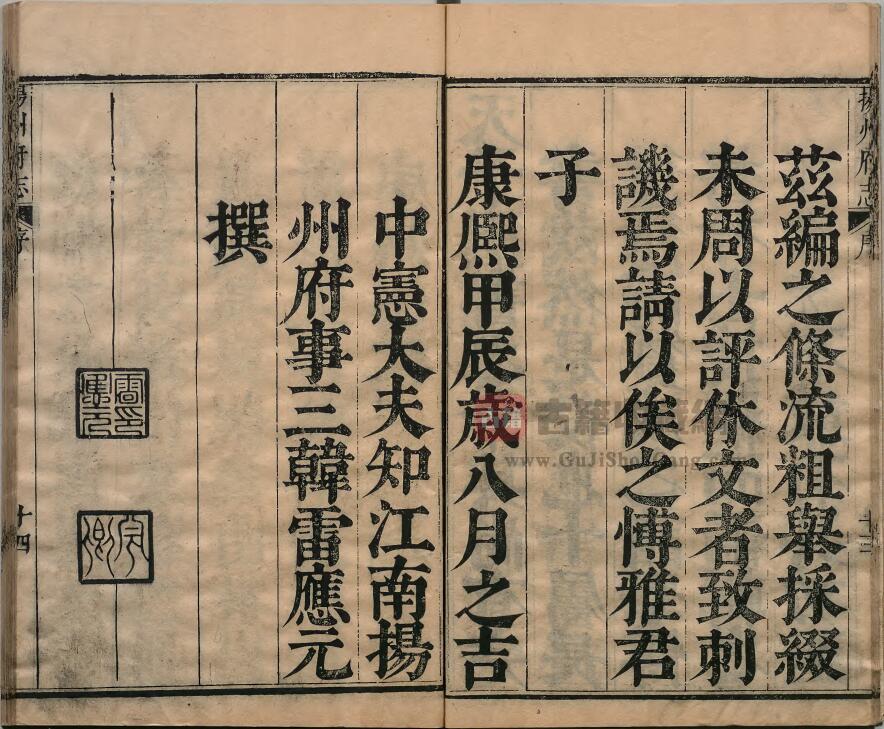 揚州府志 序
茲編之條流粗舉採綴
未周以評休文者致刺
譏焉請以俟之愽雅君
子
康熙甲辰歲八月之吉
中憲大夫知江南揚
州府事三韓雷應元
撰
揚州府志 序
十四
古籍
www.GuJiShouCang.com